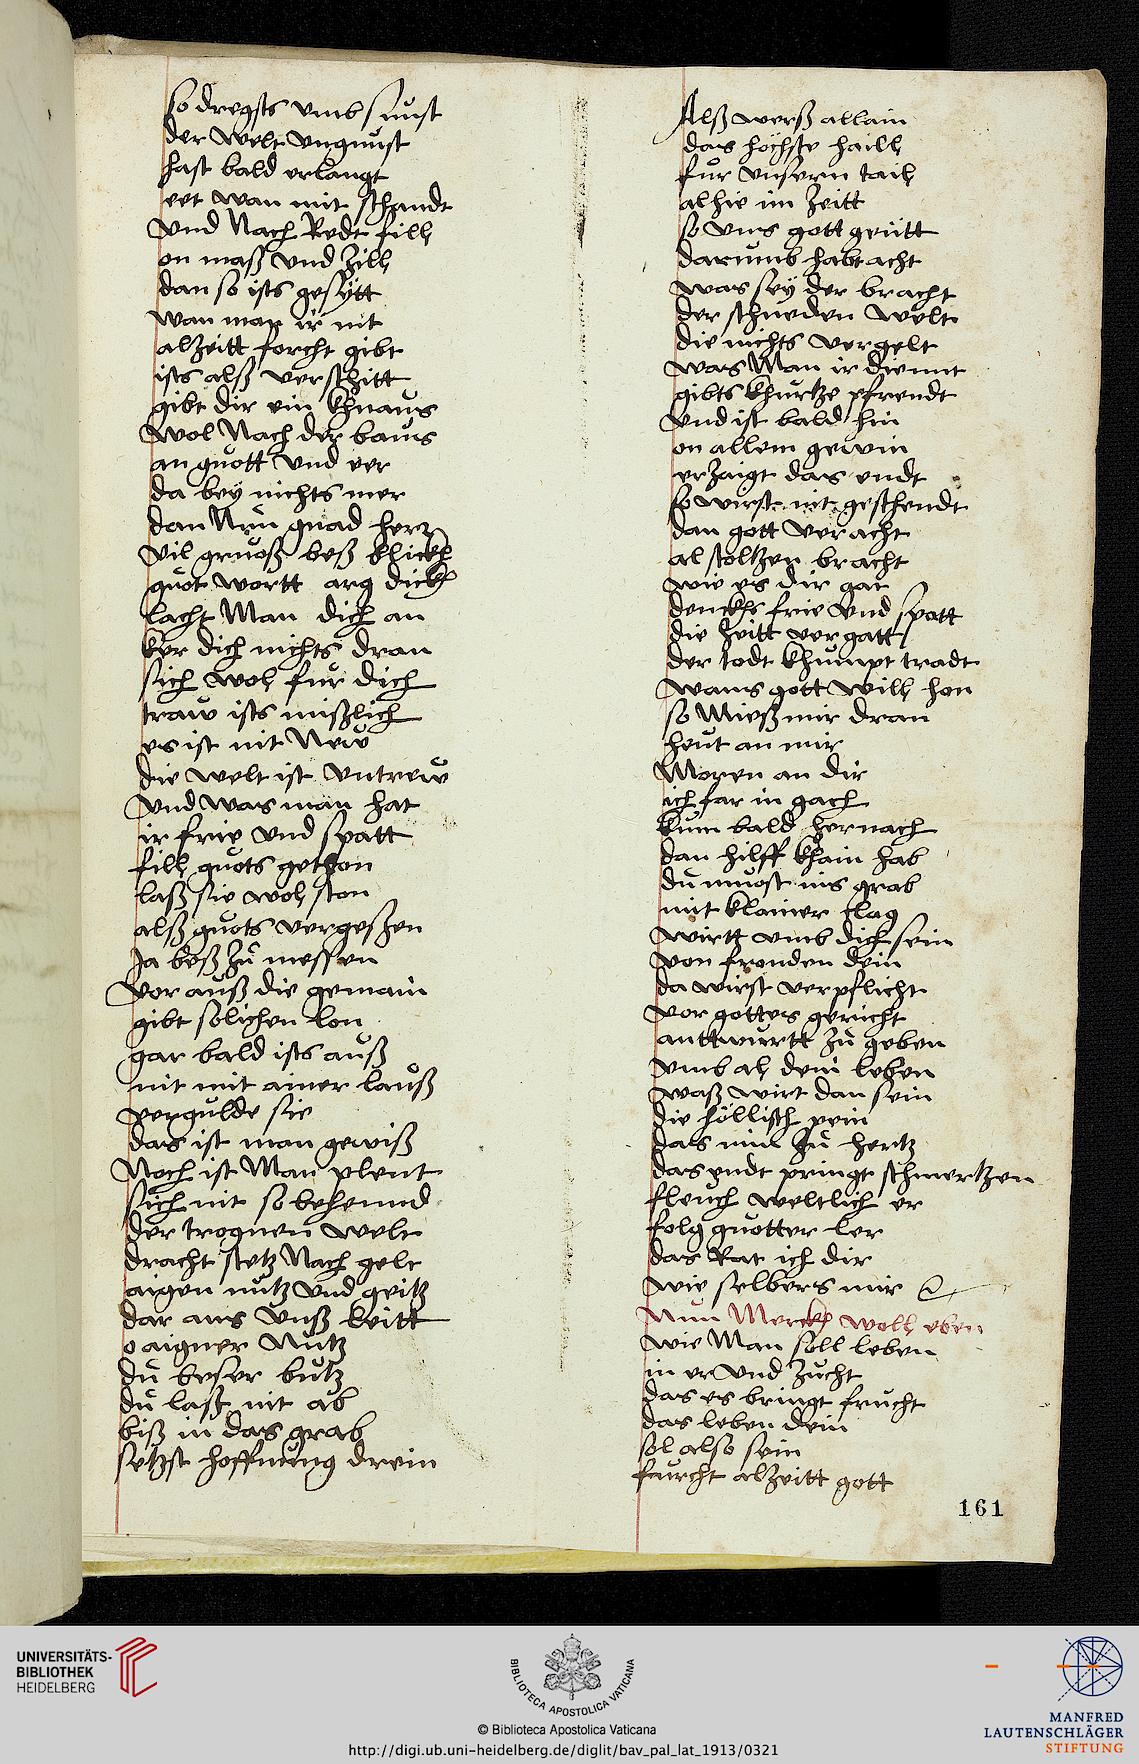 so dregsts umb sunst
der Welt ungunst
hast bald erlangt
eet wan mit schandt
Und Nach Redt fill
on masß Und Zill
dan so ists gesÿtt
wan man ir nit
alzeitt forcht gibt
ists alß verschitt
gibt dir ein Khnaus
Wol Nach der baus
an guott Und eer
da beÿ nichts mer
dan Nun gnad herr
Vil gruoß beß blickh
guot wortt arg dickh
lacht Man dich an
ker dich nichts dran
sich wol fur dich
traw ists mißlich
es ist nit New
die welt ist Untrew
Und was man hat
ir frie Und spatt
fill guots gethon
laß sie wol ston
alß guots vergeßen
Ja beß zu messen
vor auß die gemain
gibt solichen lon
gar bald ists auß
nit mit ainer lauß
vergulde sie
das ist man gewiß
Noch ist Man plent
sich nit so behennd
der trognen welt
dracht stetz Nach gelt
aigen nutz Und geitz
dar aus Unß leitt
o aigner Nutz
du beser butz
du laßt nit ab
biß in das grab
setzst hoffnung drein
Alß werß allain
das höchste haill
fur Unsern tail
alhie im Zeitt
so Uns gott geitt
darumb habt acht
was seÿ der bracht
der schneden Welt
die nichts vergelt
was Man ir diennt
gibts khurtze pfrendt
Und ist bald hin
on allem gewin
erzaigt das endt
so wirst nit geschendt
dan gott veracht
al stoltzen bracht
wie es dir gat
denckhs frie Und spatt
die Zeitt vergatt
der todt khumpt tradt
wans gott will hon
so Mießmir dran
heut an mir
Morgen an dir
ich far in gach
kum bald hernach
dan hilff khain hab
du muost ins grab
mit klainer clag
wirtt umb dich sein
von frenden dein
da wirst verpflicht
vor gottes gericht
anttwurtt zu geben
Umb al dein leben
waß wirt dan sein
die höllisch pein
das nim zu hertz
das endt pringt schmertzen
fleuch weltlich er
folg guotter ler
das Rat ich dir
wie selbers mir
Nun Merckh woll eben
wie Man soll leben
in er Und Zucht
das es bringt frucht
das leben dein
sol also sein
furcht alzeitt gott
161
UNIVERSITÄTS-
BIBLIOTHEK
HEIDELBERG
BIBLIOTECA APOSTOLICA VATICANA
© Biblioteca Apostolica Vaticana
http://digi.ub.uni-heidelberg.de/diglit/bav_pal_lat_1913/0321
MANFRED
LAUTENSCHLÄGER
STIFTUNG